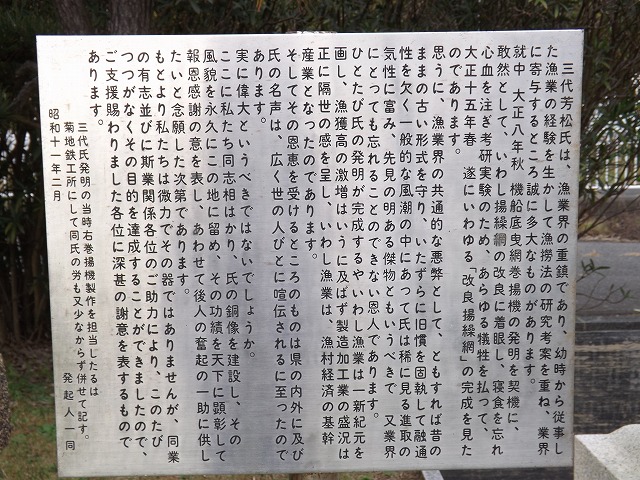 三代芳松氏は、漁業界の重鎮であり、幼時から従事し
た漁業の経験を生かして漁撈法の研究考案を重ね、業界
に寄与するところ誠に多大なものがあります。
就中 大正八年秋 機船底曳網巻揚機の発明を契機に、
敢然として、いわし揚繰網の改良に着眼し、寝食を忘れ
心血を注ぎ考研実験のため、あらゆる犠牲を払って、
大正十五年春 遂にいわゆる「改良揚繰網」の完成を見た
のであります。
思うに、漁業界の共通的な悪弊として、ともすれば昔の
ままの古い形式を守り、いたずらに旧慣を固執して融通
性を欠く一般的な風潮の中にあって氏は稀に見る進取の
気性に富み、先見の明ある傑物ともいうべきで 又業界
にとっても忘れることのできない恩人であります。
ひとたび氏の発明が完成するやいわし漁業は一新紀元を
画し、漁獲高の激増はいうに及ばず製造加工業の盛況は
正に隔世の感を呈し、いわし漁業は、漁村経済の基幹
産業となったのであります。
そしてその恩恵を受けるところのものは県の内外に及び
氏の名声は、広く世の人びとに喧伝されるに至ったので
あります。
実に偉大というべきではないでしょうか。
ここに私たち同志相はかり、氏の銅像を建設し、その
風貌を永久にこの地に留め、その功績を天下に顕彰して
報恩感謝の意を表し、あわせて後人の奮起の一助に供し
たいと念願した次第であります。
もとより私たちは微力でその器ではありませんが、同業
の有志並びに斯業関係各位のご助力により、このたび
つつがなくその目的を達成することができましたので、
ご支援賜わりました各位に深甚の謝意を表するもので
あります。
三代氏発明の当時右巻揚機製作を担当したるは
菊地鉄工所にして同氏の労も又少なからず併せて記す。
昭和十一年二月 発起人一同